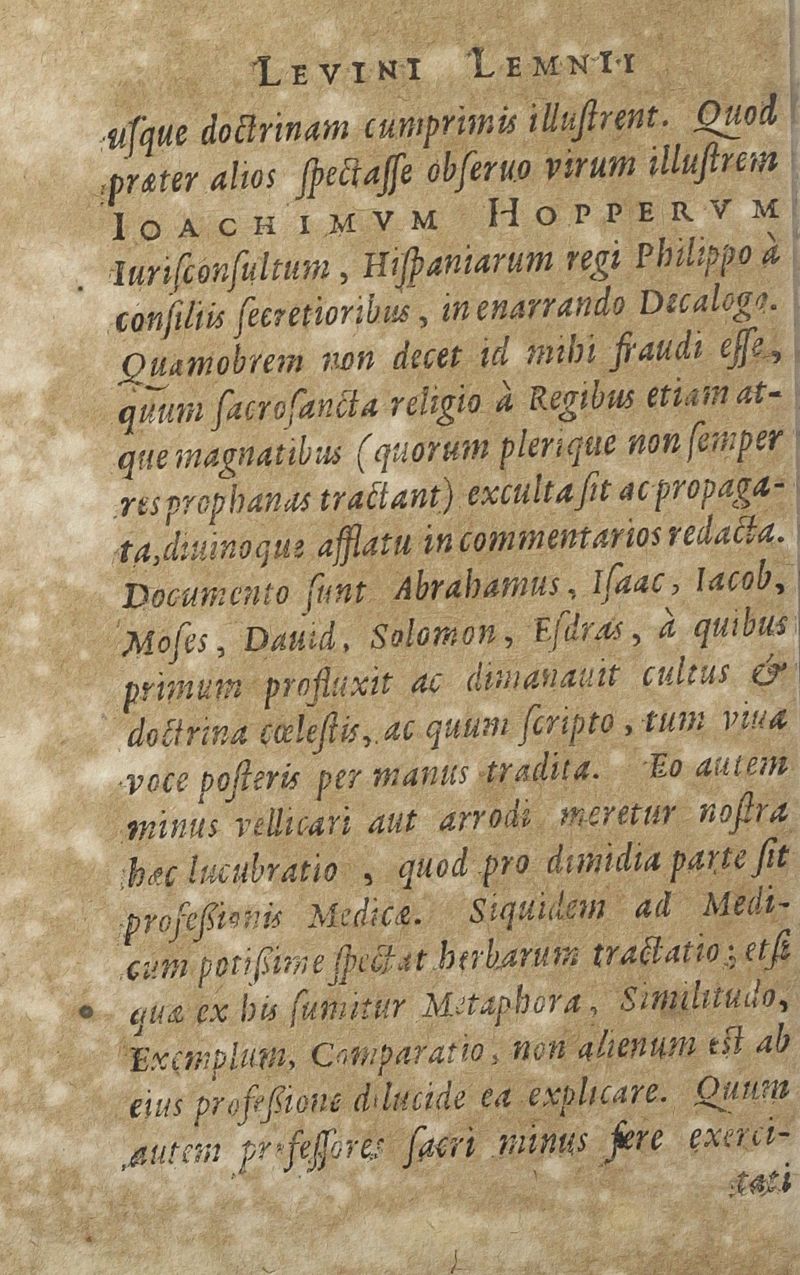 LEVINI LEMNII
uſque doctrinam cumprimis illuſtrent. Quod
præter alios ſpectaſſe obſeruo virum illuſtrem
IOACHIMVM HOPPERVM
Iuriſconſultum, Hiſpaniarum regi Philippo à
conſiliis ſecretioribus, in enarrando Decalogo.
Quamobrem non decet id mihi fraudi eſſe,
quum ſacroſancta religio à Regibus etiam at-
que magnatibus (quorum plerique non ſemper
res prophanas tractant) exculta ſit ac propaga-
ta, diuinoque afflatu in commentarios redacta.
Documento ſunt Abrahamus, Iſaac, Iacob,
Moſes, Dauid, Solomon, Eſdras, à quibus
primum profluxit ac dimanauit cultus &
doctrina cœleſtis, ac quum ſcripto, tum viua
voce poſteris per manus tradita. Eo autem
minus vellicari aut arrodi meretur noſtra
hæc lucubratio, quod pro dimidia parte ſit
profeſsionis Medicæ. Siquidem ad Medi-
cum potiſsime ſpectat herbarum tractatio; etſi
quæ ex his ſumitur Metaphora, Similitudo,
Exemplum, Comparatio, non alienum eſt ab
eius profeſsione dilucide ea explicare. Quum
autem profeſſores ſacri minus fere exerci-
tati